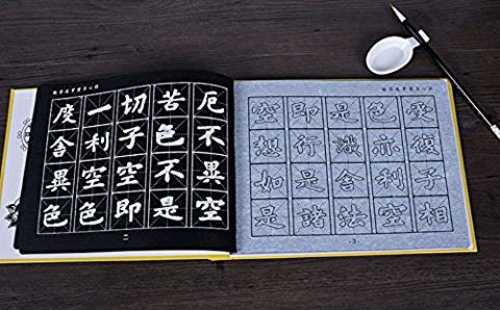 度一切苦厄
舍利子色不
異空空不異
色色即是空
二
空即是色受
想行識亦復
如是舍利子
是諸法空相
3